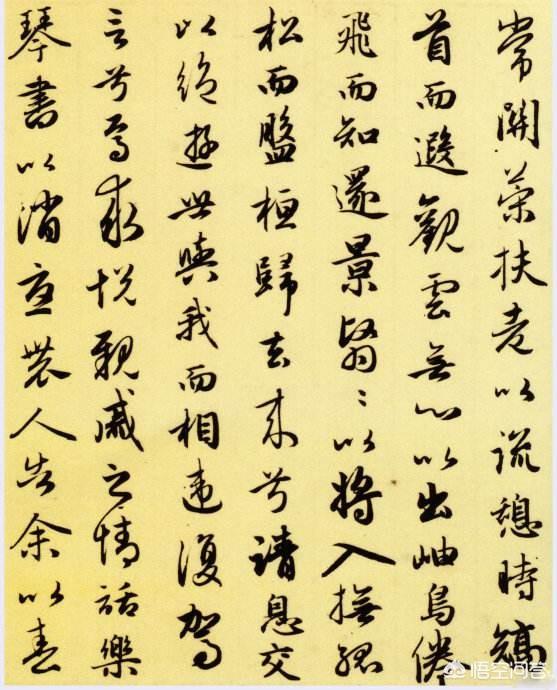 常關策扶老以流憩時矯
首而遐觀雲無心以出岫鳥倦
飛而知還景翳〻以將入撫孤
松而盤桓歸去來兮請息交
以絕遊世與我而相違復駕
言兮焉求悅親戚之情話樂
琴書以消憂農人告余以春
悟空问答